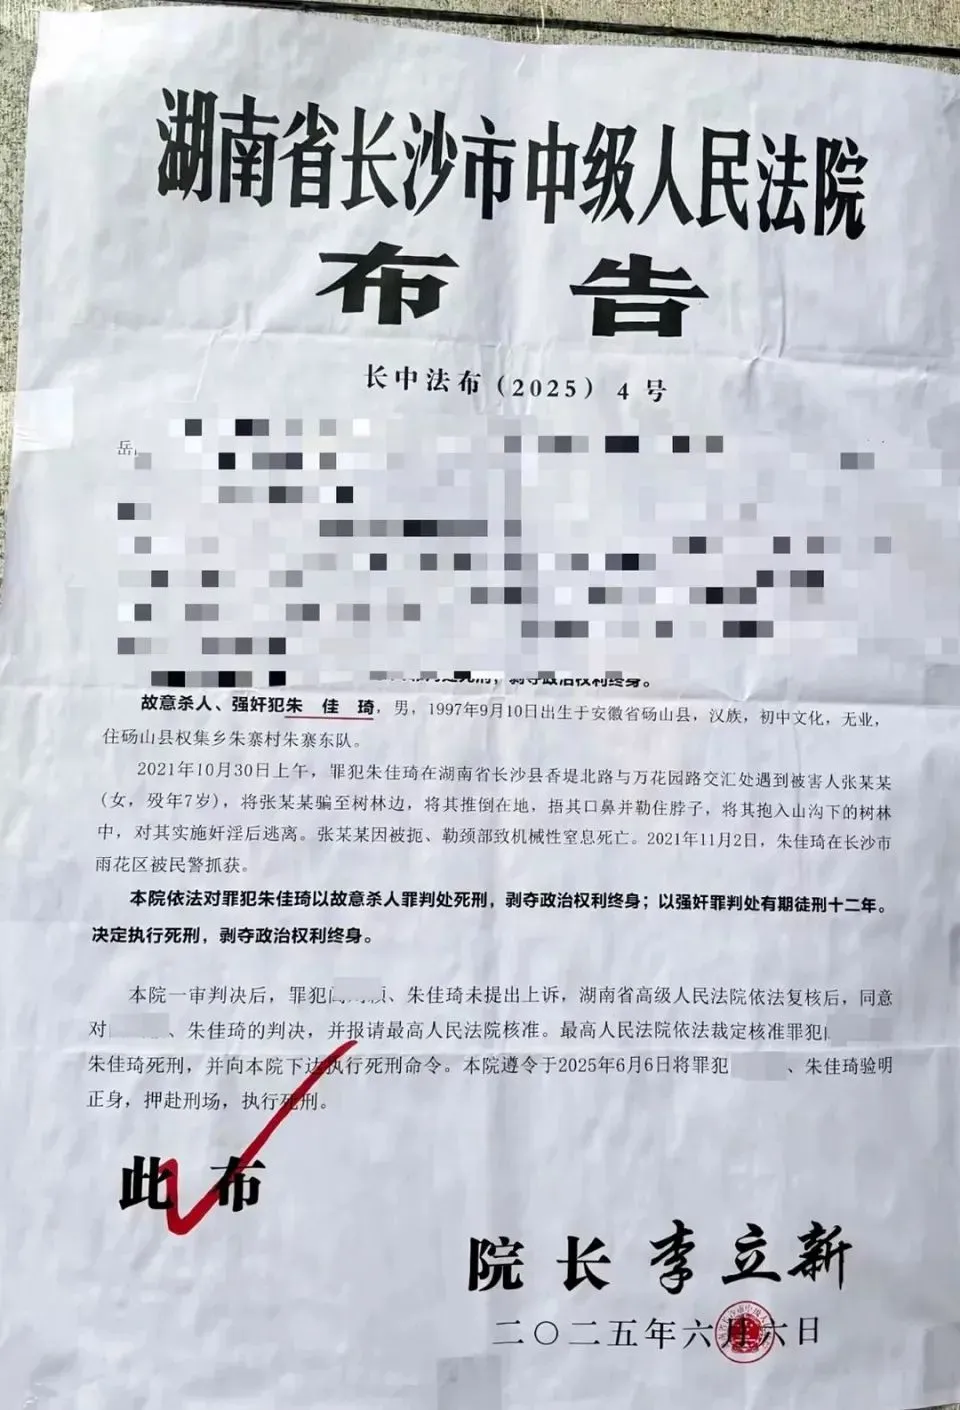 湖南省长沙市中级人民法院
布 告
长中法布(2025) 4 号
岳
剥夺政治权利终身。
故意杀人、强奸犯朱 佳 琦，男，1997年9月10日出生于安徽省砀山县，汉族，初中文化，无业，
住砀山县权集乡朱寨村朱寨东队。
2021年10月30日上午，罪犯朱佳琦在湖南省长沙县香堤北路与万花园路交汇处遇到被害人张某某
(女，殁年7岁)，将张某某骗至树林边，将其推倒在地，捂其口鼻并勒住脖子，将其抱入山沟下的树林
中，对其实施奸淫后逃离。张某某因被扼、勒颈部致机械性窒息死亡。2021年11月2日，朱佳琦在长沙市
雨花区被民警抓获。
本院依法对罪犯朱佳琦以故意杀人罪判处死刑，剥夺政治权利终身；以强奸罪判处有期徒刑十二年。
决定执行死刑，剥夺政治权利终身。
本院一审判决后，罪犯、朱佳琦未提出上诉，湖南省高级人民法院依法复核后，同意
对、朱佳琦的判决，并报请最高人民法院核准。最高人民法院依法裁定核准罪犯
朱佳琦死刑，并向本院下达执行死刑命令。本院遵令于2025年6月6日将罪犯、朱佳琦验明
正身，押赴刑场，执行死刑。
此 布
院 长 李立新
二〇二五年六月六日